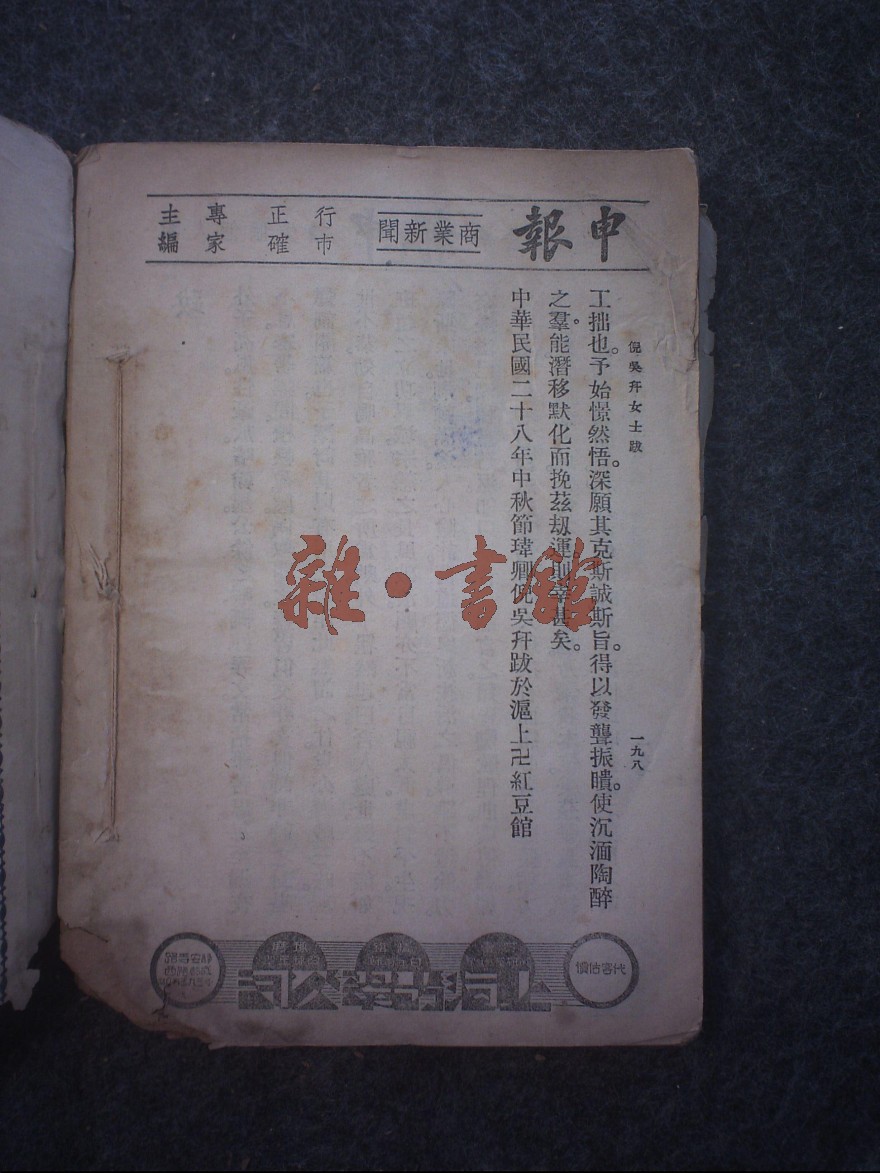 申報
商業新聞
行市正確
專家主編
倪吳幷女士跋
一九八
工拙也。予始憬然悟。深願其克斯誠斯旨。得以發聾振聵。使沉湎陶醉
之羣。能潛移默化而挽茲劫運則幸甚矣。
中華民國二十八年中秋節瑋卿倪吳幷跋於滬上卍紅豆館
代客估價
雜·書館